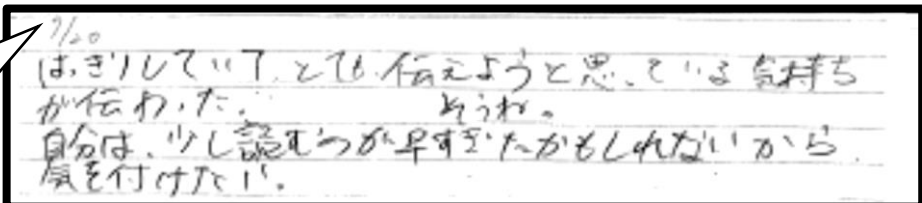 9/20
はっきりしていて、とても伝えようと思っている気持ち
が伝わった。 そうね。
自分は、少し読むのが早すぎたかもしれないから、
気を付けたい。